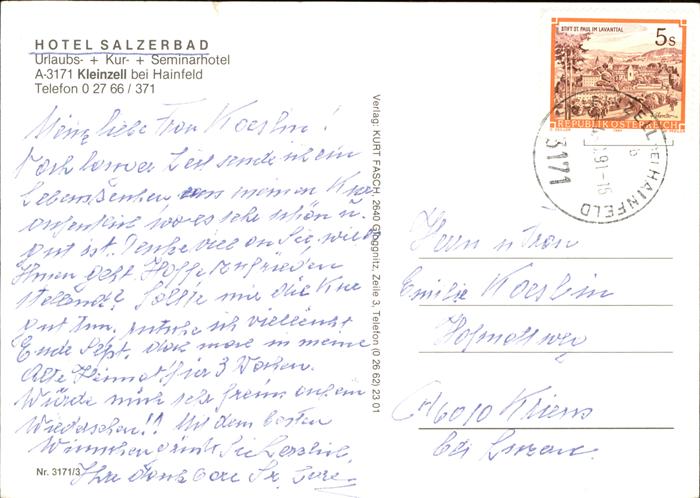 HOTEL SALZERBAD
Urlaubs- + Kur- + Seminarhotel
A-3171 Kleinzell bei Hainfeld
Telefon 0 27 66 / 371
Meine liebe Frau Koechlin!
Nach langer Zeit sende ich ein
Lebenszeichen von meinem Kur
aufenthalt wo es sehr schön u.
gut ist. Denke viel an Sie, wie
Ihnen geht. Hoffe zufrieden
stellend? Sollte mir die Kur
gut tun, rutsche ich vielleicht
Ende Sept. doch mal in meine
Alte Heimat für 3 Wochen.
Würde mich sehr freuen auf ein
Wiedersehen!! Mit den besten
Wünschen grüsst Sie herzlich,
Ihre dankbare Sr.
Nr. 3171/3
Verlag: KURT FASCH, 2640 Gloggnitz, Zeile 3, Telefon (0 26 62) 23 01
STIFT ST. PAUL IM LAVANTTAL
5s
REPUBLIK ÖSTERREICH
ZELL BEI HAINFELD
91-16
3171
Herrn u Frau
Emilie Koechlin
Hofmattweg
CH 6010 Kriens
bei Luzern.